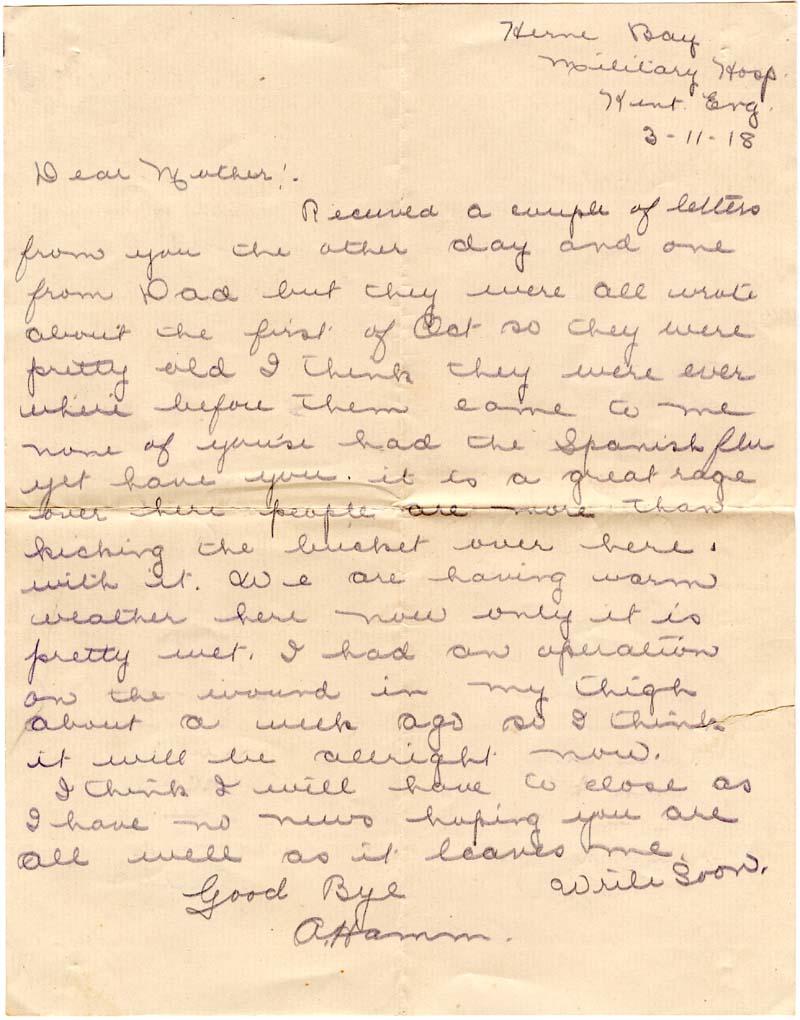 Herne Bay
Military Hosp.
Kent. Eng.
3-11-18
Dear Mother!.
Recieved a couple of letters
from you the other day and one
from Dad but they were all wrote
about the first of Oct so they were
pretty old I think they were ever
where before them came to me
none of you'se had the Spanish flu
yet have you. it is a great rage
over here people are more than
kicking the bucket over here.
with it. We are having warm
weather here now only it is
pretty wet. I had an operation
on the wound in my thigh
about a week ago so I think
it will be allright now.
I think I will have to close as
I have no news hoping you are
all well as it leaves me.
Good Bye Write Soon.
A. Hamm.